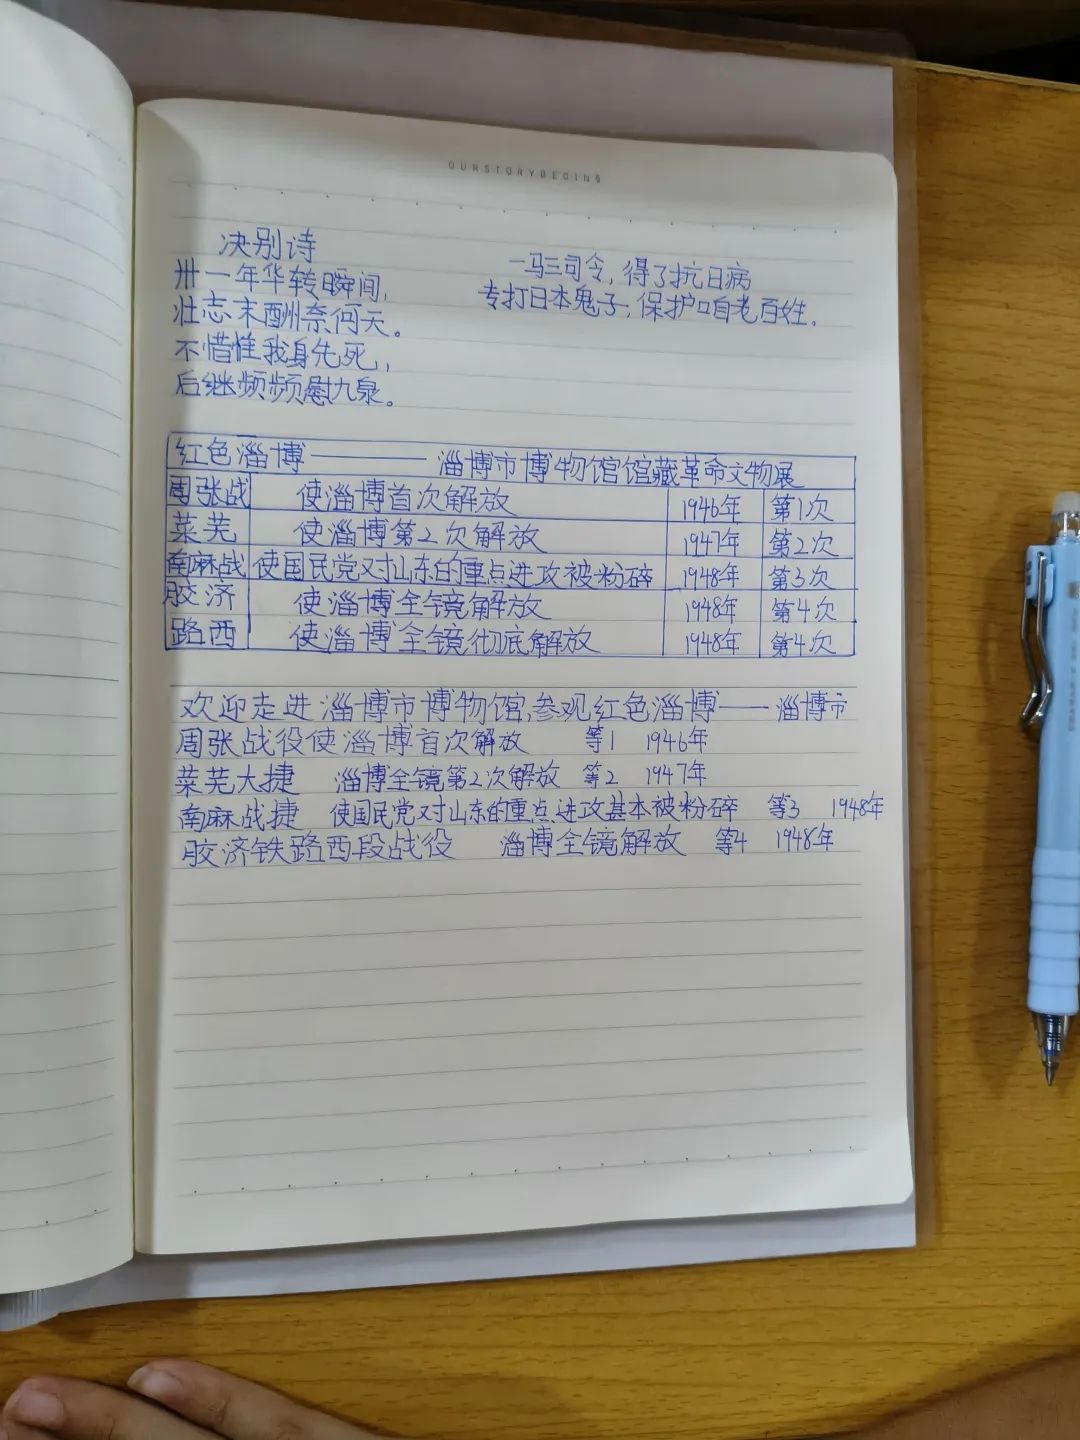 OURSTORYBEGINS
决别诗
卅一年华转瞬间,
壮志未酬奈何天。
不惜惟我身先死,,
后继频频慰九泉。
一马三司令,得了抗日病
专打日本鬼子,保护咱老百姓.
红色淄博——淄博市博物馆馆藏革命文物展
周张战 使淄博首次解放 1946年 第1次
菜芜 使淄博第2次解放 1947年 第2次
南麻战 使国民党对山东的重点进攻被粉碎 1948年 第3次
胶济 使淄博全镜解放 1948年 第4次
路西 使淄博全镜彻底解放 1948年 第4次
欢迎走进淄博市博物馆,参观红色淄博——淄博市
周张战役使淄博首次解放 等1 1946年
菜芜大捷 淄博全镜第2次解放 等2 1947年
南麻战捷 使国民党对山东的重点进攻基本被粉碎 等3 1948年
胶济铁路西段战役 淄博全镜解放 等4 1948年